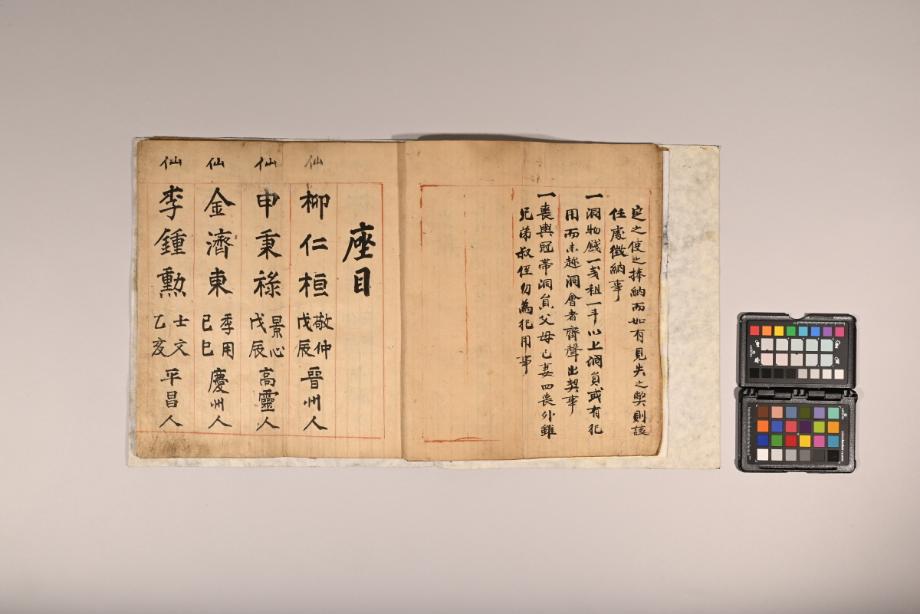 定之使之捧納而如有見失之弊則該
任處徵納事
一洞物錢一戔租一斗以上洞員或有犯
用而未趂洞會者齊聲出契事
一喪輿冠帶洞員父母己妻四喪外雖
兄弟叔侄勿爲犯用事
座目
仙 柳仁桓 敬仲 戊辰 晋州人
仙 申秉祿 景心 戊辰 高靈人
仙 金濟東 季用 己巳 慶州人
仙 李鍾勳 士文 乙亥 平昌人